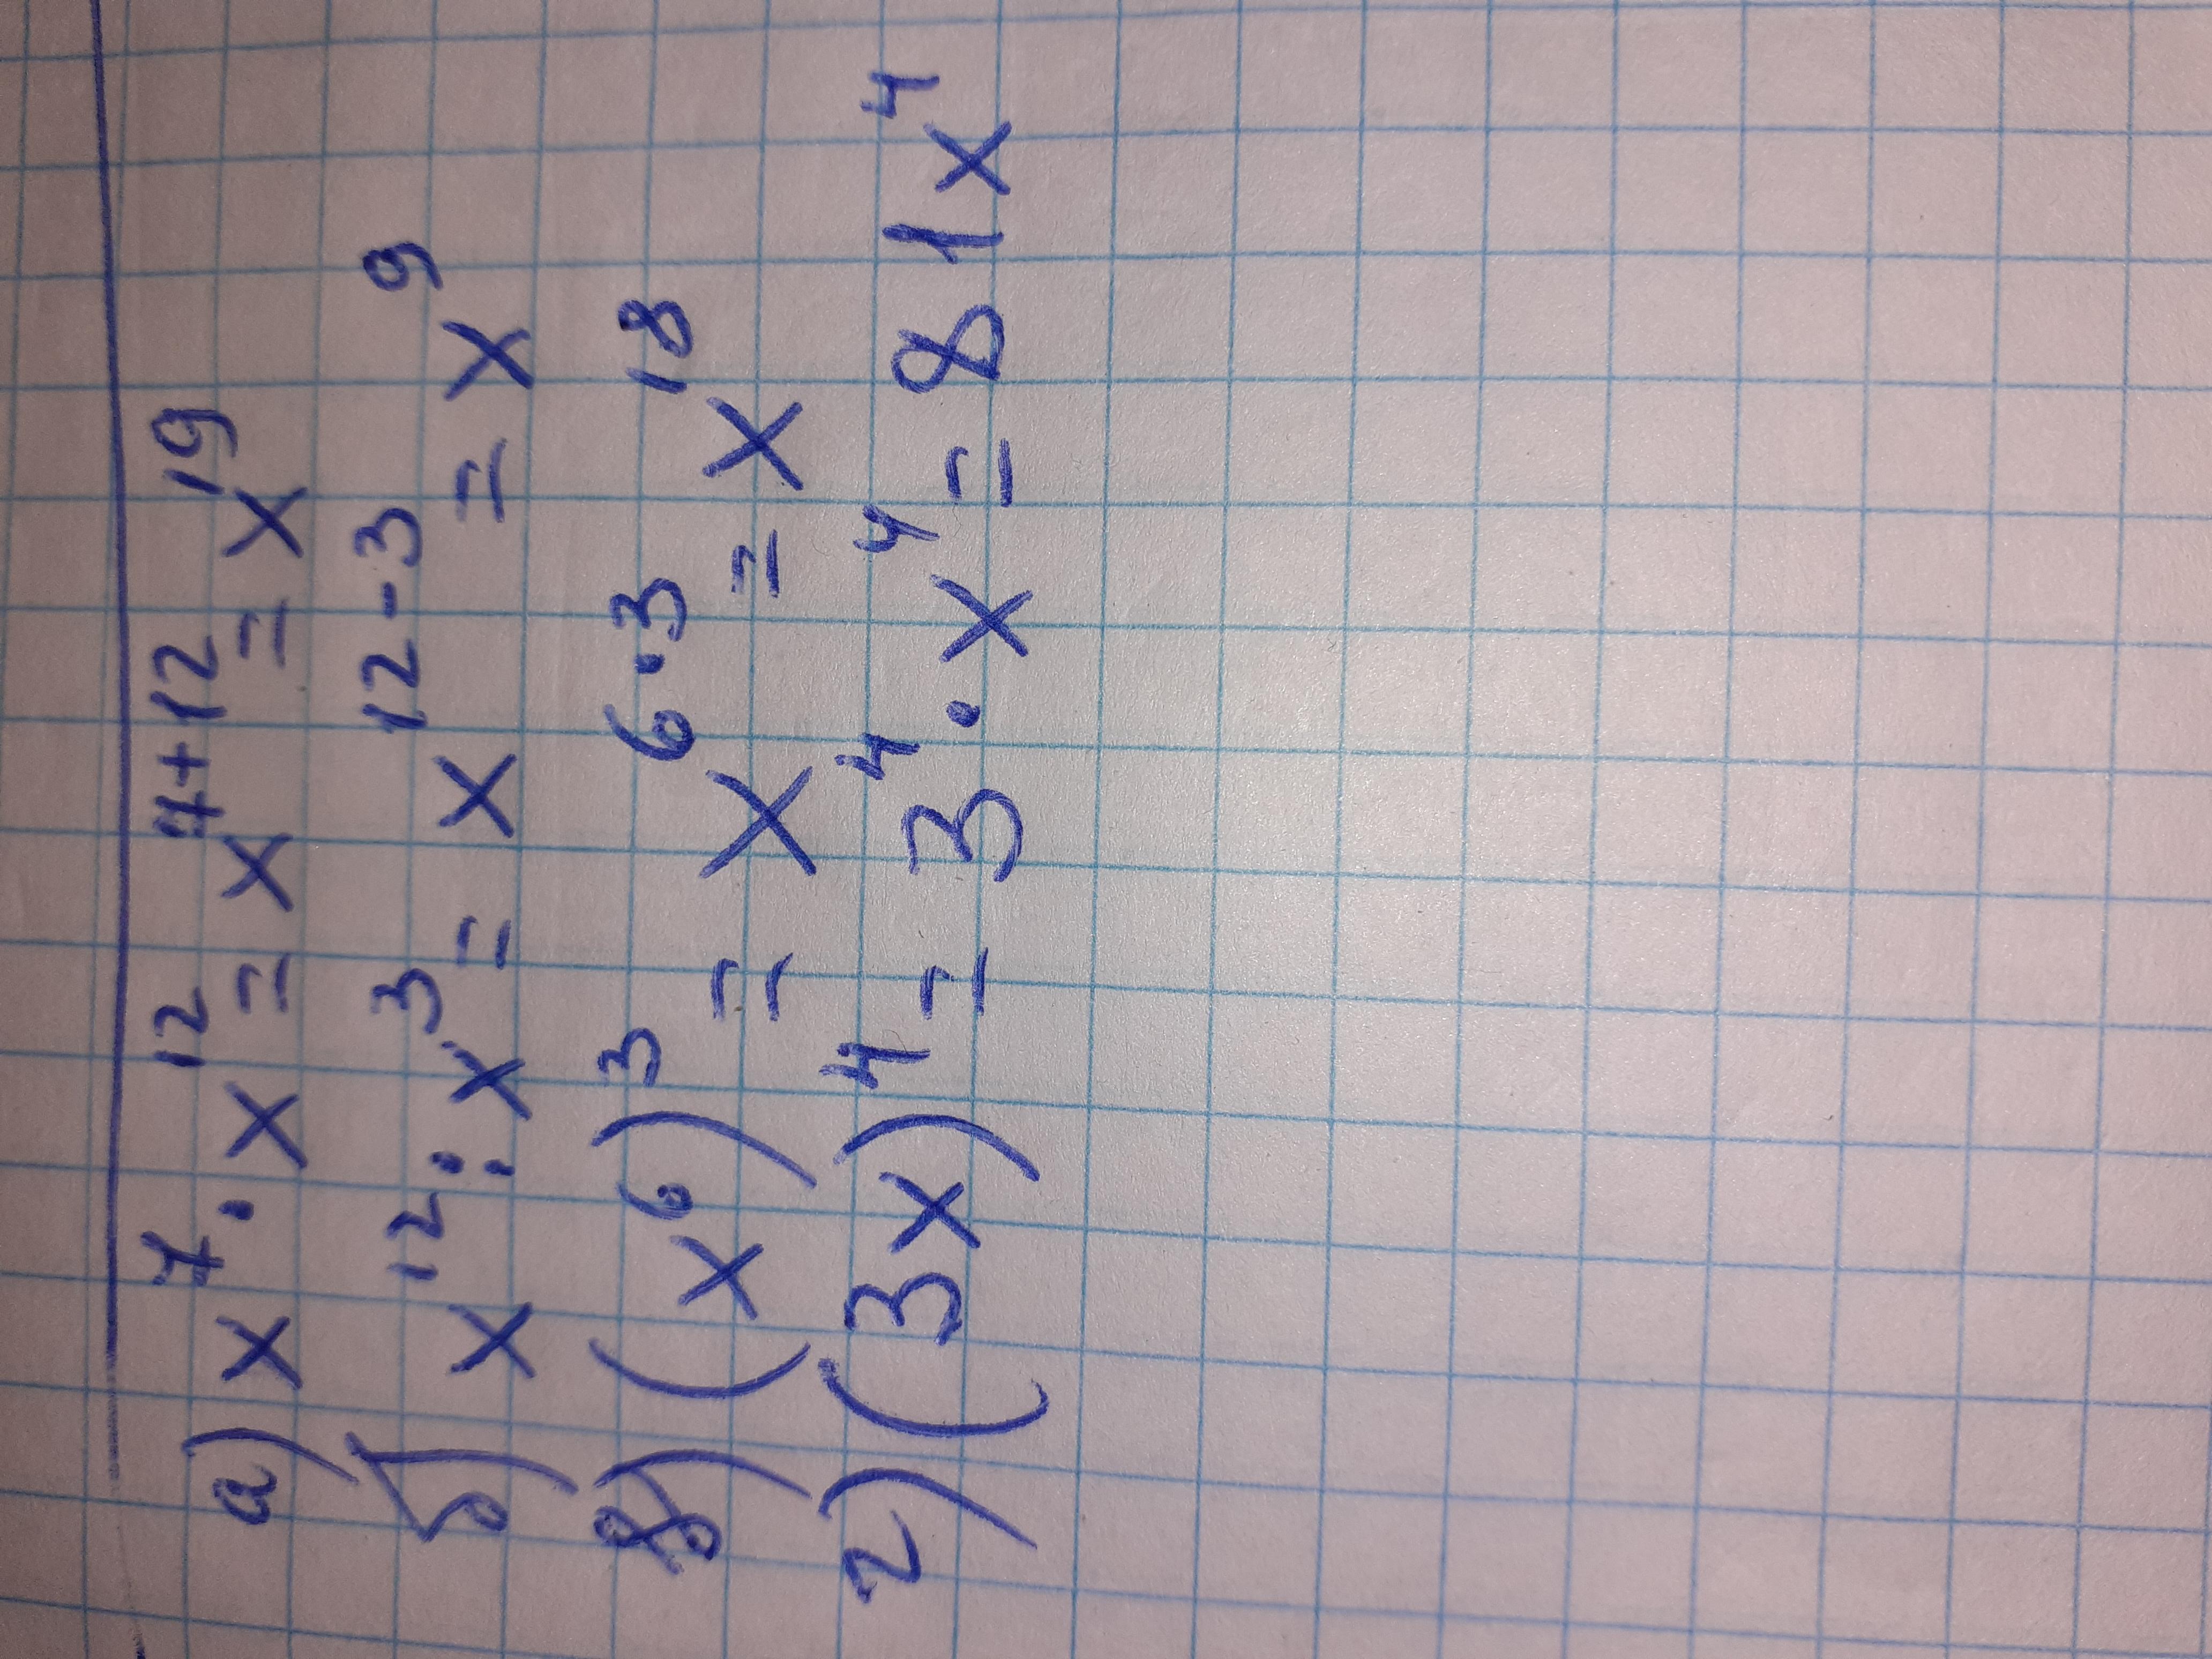 а) x⁷ · x¹² = x⁷⁺¹² = x¹⁹
б) x¹² : x³ = x¹²⁻³ = x⁹
в) (x⁶)³ = x⁶·³ = x¹⁸
г) (3x)⁴ = 3⁴ · x⁴ = 81x⁴